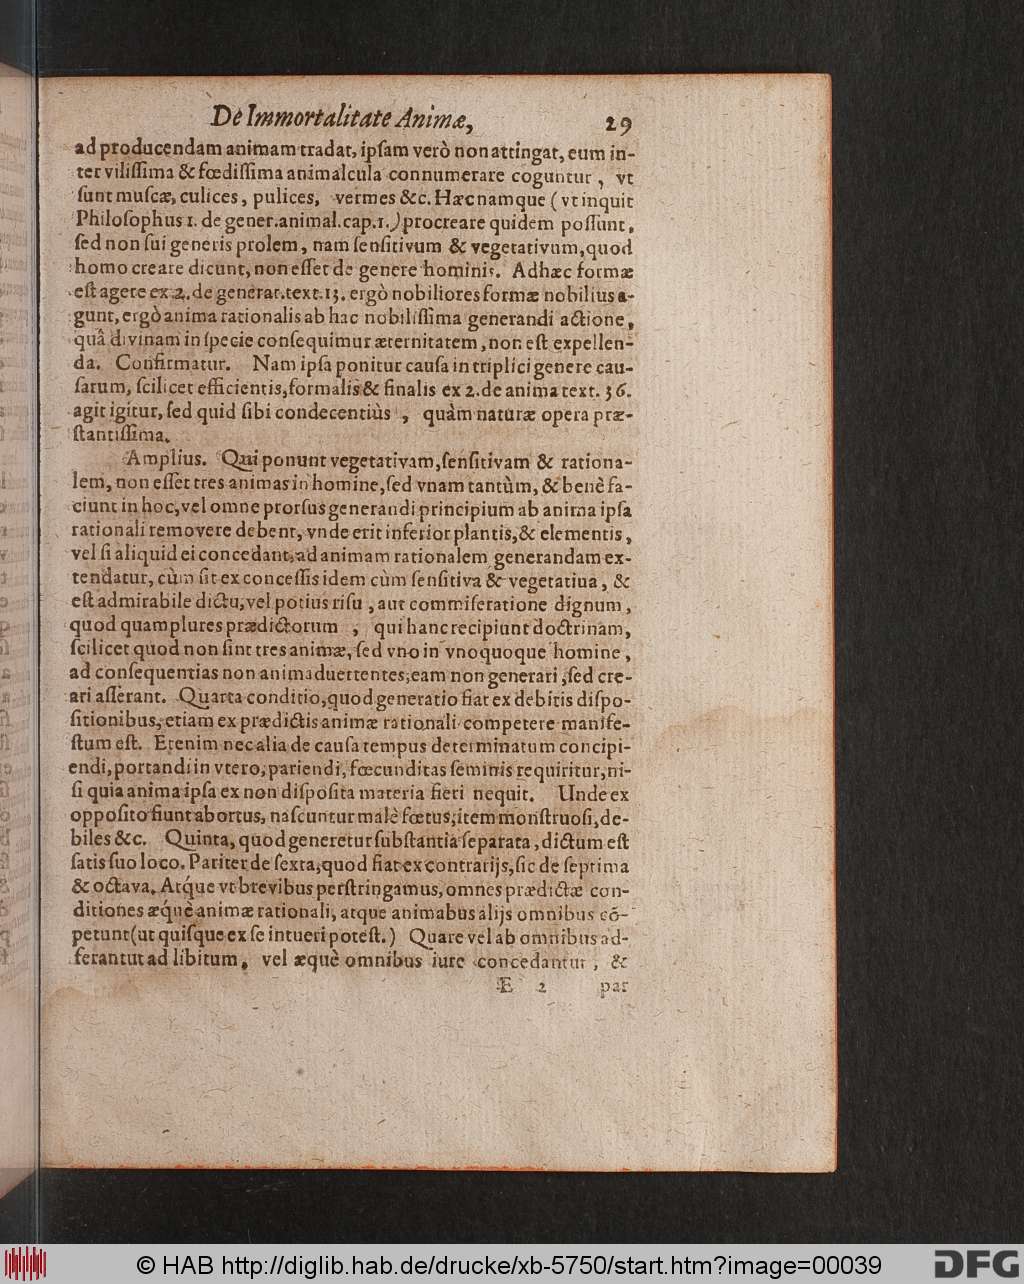 De Immortalitate Animæ, 29
ad producendam animam tradat, ipſam verò non attingat, eum in-
ter viliſſima & fœdiſſima animalcula connumerare coguntur, vt
ſunt muſcæ, culices, pulices, vermes &c. Hæc namque (vt inquit
Philoſophus 1. de gener. animal. cap. 1.) procreare quidem poſſunt,
ſed non ſui generis prolem, nam ſenſitivum & vegetativum, quod
homo creare dicunt, non eſſet de genere hominis. Adhæc formæ
eſt agere ex 2. de generat. text. 13. ergò nobiliores formæ nobilius a-
gunt, ergò anima rationalis ab hac nobiliſſima generandi actione,
quâ divinam in ſpecie conſequimur æternitatem, non eſt expellen-
da. Confirmatur. Nam ipſa ponitur cauſa in triplici genere cau-
ſarum, ſcilicet efficientis, formalis & finalis ex 2. de anima text. 36.
agit igitur, ſed quid ſibi condecentiùs, quàm naturæ opera præ-
ſtantiſſima.
Amplius. Qui ponunt vegetativam, ſenſitivam & rationa-
lem, non eſſet tres animas in homine, ſed vnam tantùm, & benè fa-
ciunt in hoc, vel omne prorſus generandi principium ab anima ipſa
rationali removere debent, vnde erit inferior plantis, & elementis,
vel ſi aliquid ei concedant, ad animam rationalem generandam ex-
tendatur, cùm ſit ex conceſſis idem cùm ſenſitiva & vegetatiua, &
eſt admirabile dictu, vel potius riſu, aut commiſeratione dignum,
quod quamplures prædictorum, qui hanc recipiunt doctrinam,
ſcilicet quod non ſint tres animæ, ſed vno in vnoquoque homine,
ad conſequentias non animaduertentes, eam non generari, ſed cre-
ari aſſerant. Quarta conditio, quod generatio fiat ex debitis diſpo-
ſitionibus, etiam ex prædictis animæ rationali competere manife-
ſtum eſt. Etenim nec alia de cauſa tempus determinatum concipi-
endi, portandi in vtero, pariendi, fœcunditas feminis requiritur, ni-
ſi quia anima ipſa ex non diſpoſita materia fieri nequit. Unde ex
oppoſito fiunt abortus, naſcuntur malè fœtus, item monſtruoſi, de-
biles &c. Quinta, quod generetur ſubſtantia ſeparata, dictum eſt
ſatis ſuo loco. Pariter de ſexta, quod fiat ex contrarijs, ſic de ſeptima
& octava. Atq́ue vt brevibus perſtringamus, omnes prædictæ con-
ditiones æq́uè animæ rationali, atque animabus alijs omnibus cõ-
petunt (ut quiſque ex ſe intueri poteſt.) Quare vel ab omnibus ad-
ferantut ad libitum, vel æquè omnibus iure concedantur, &
E 2 par
© HAB http://diglib.hab.de/drucke/xb-5750/start.htm?image=00039
DFG